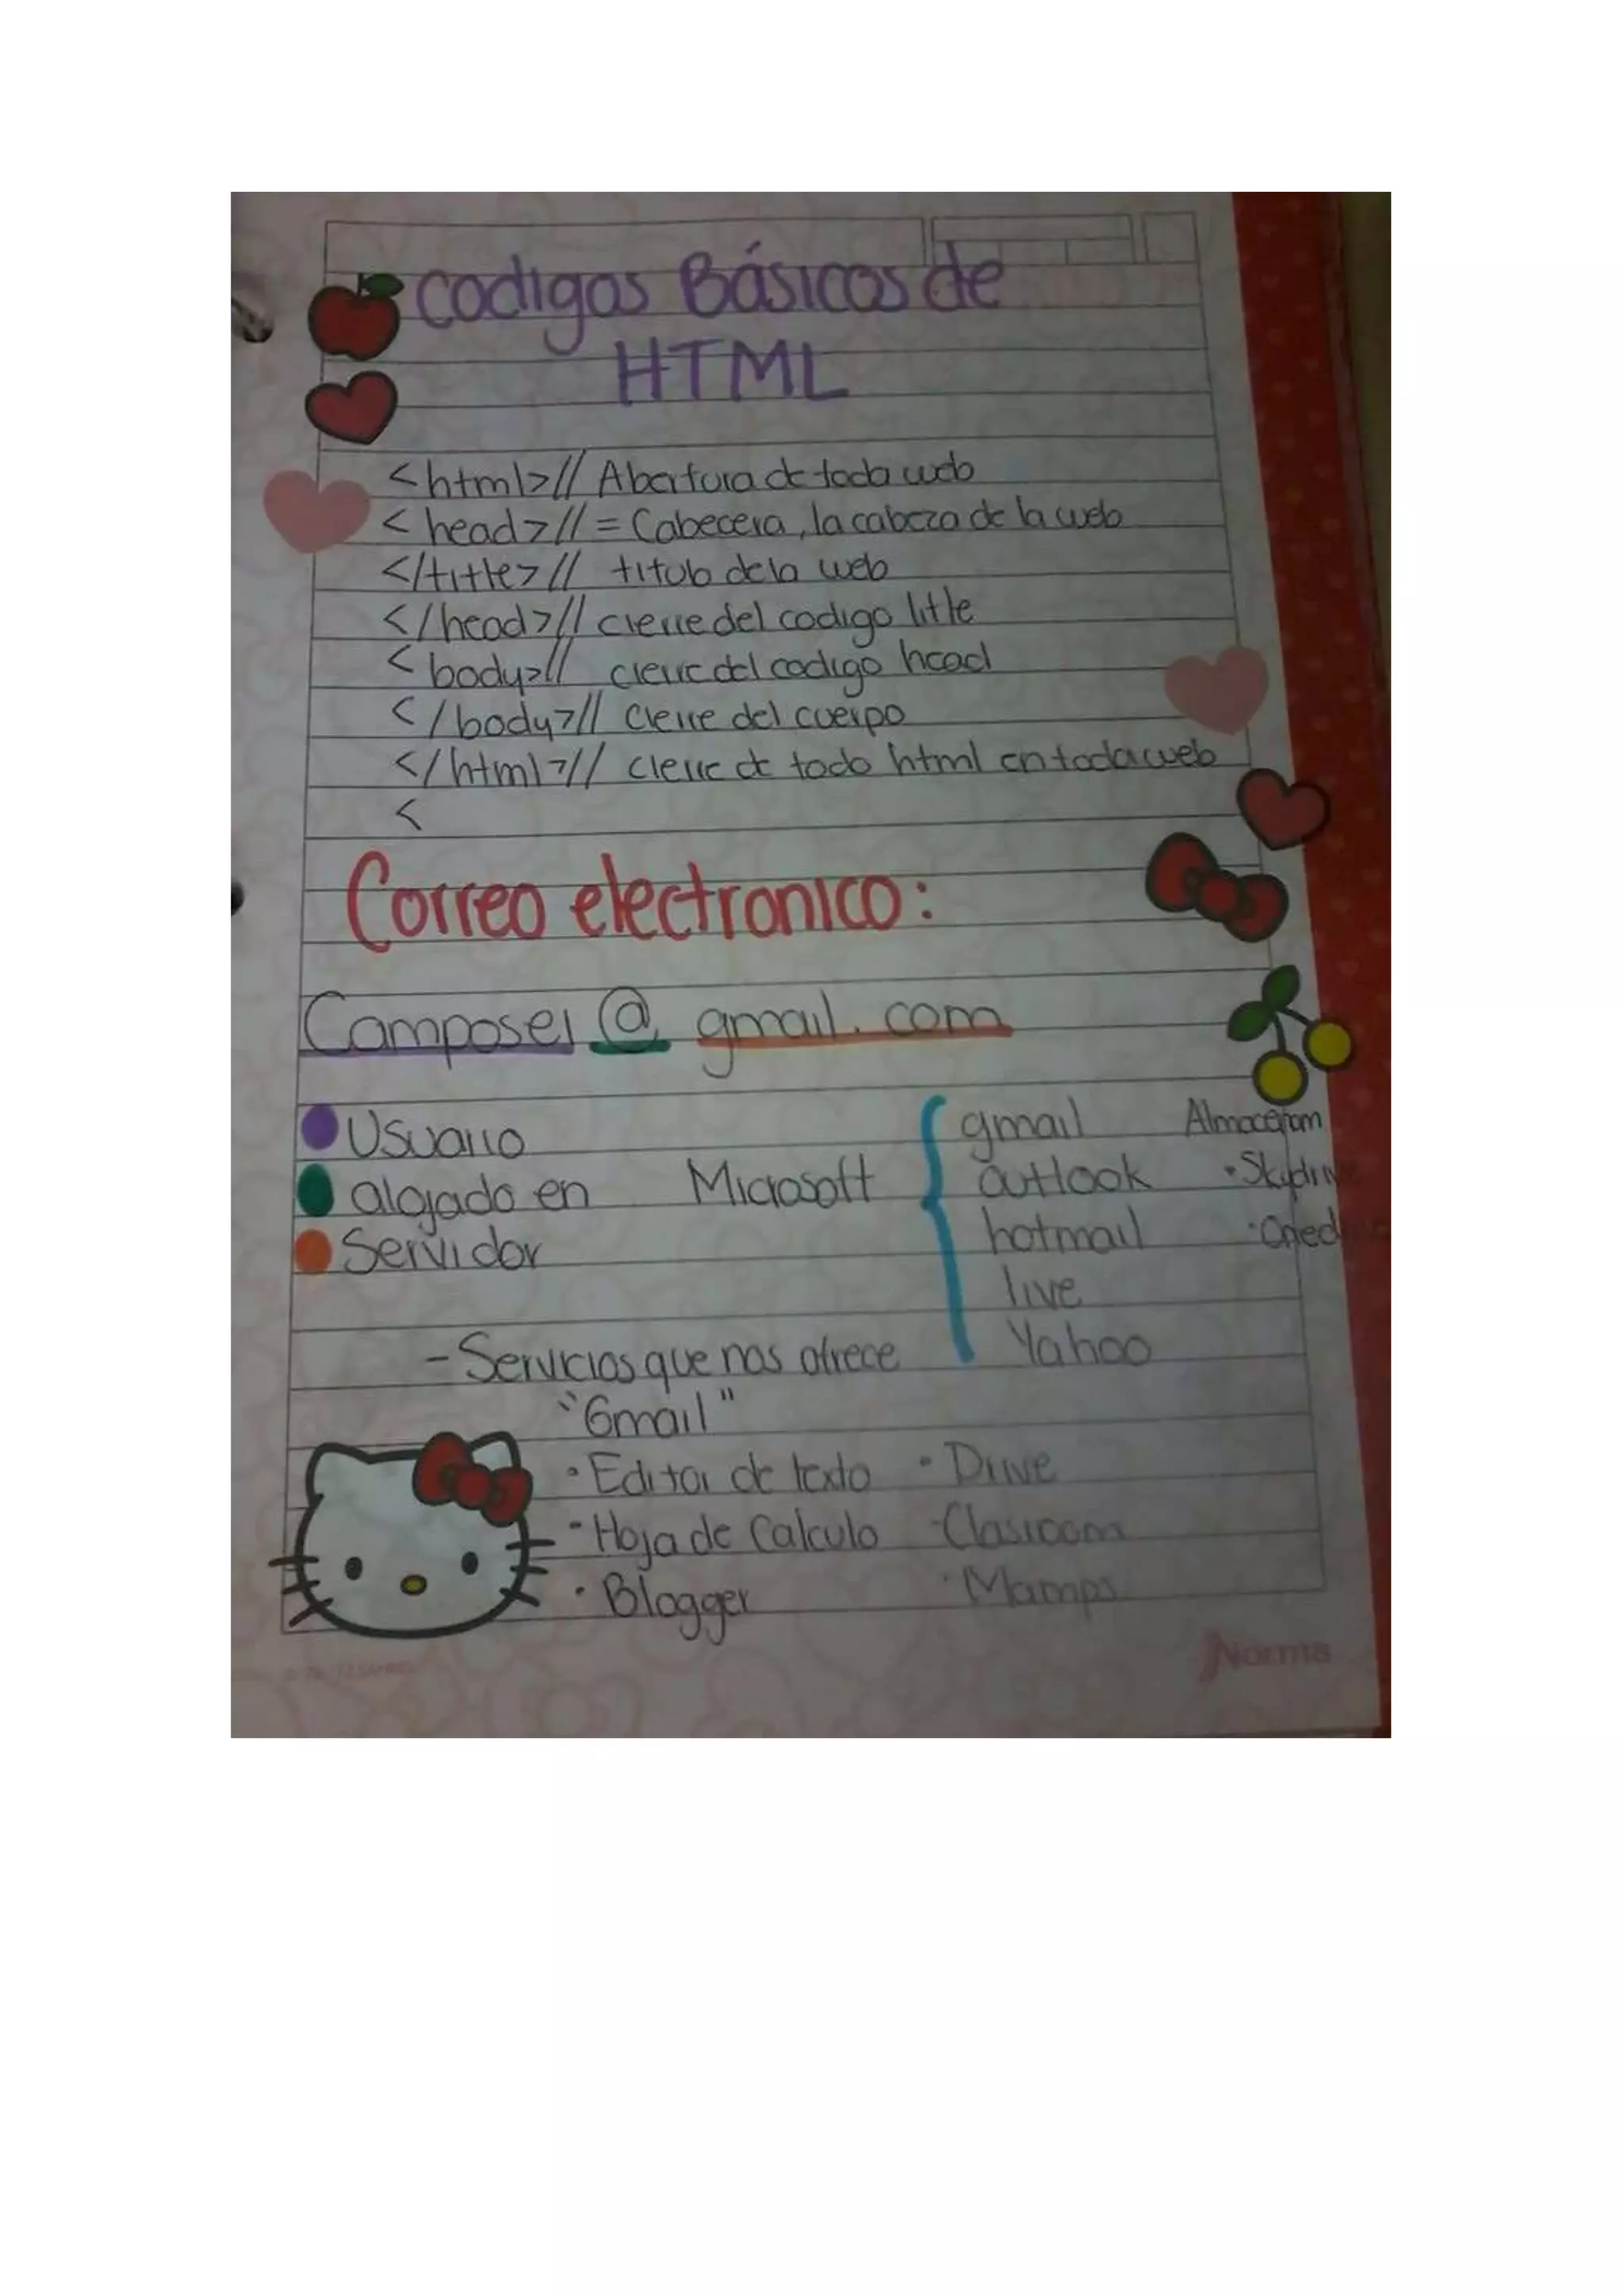 Codigos Básicos de
HTML
<html>// Abertura de toda web
<head>// = Cabecera, la cabeza de la web
</title>// titulo de la web
</head>// cierre del codigo litle
<body>// cierre del codigo head
</body>// cierre del cuerpo
</html>// cierre de todo html en toda web
<
Correo electronico:
Camposei @ gmail.com
Usuario
alojado en
Servidor
Microsoft
gmail
outlook
hotmail
live
Yahoo
· Skydrive
- Servicios que nos ofrece
"Gmail"
· Editor de texto · Drive
· Hoja de Calculo
· Blogger
Norma